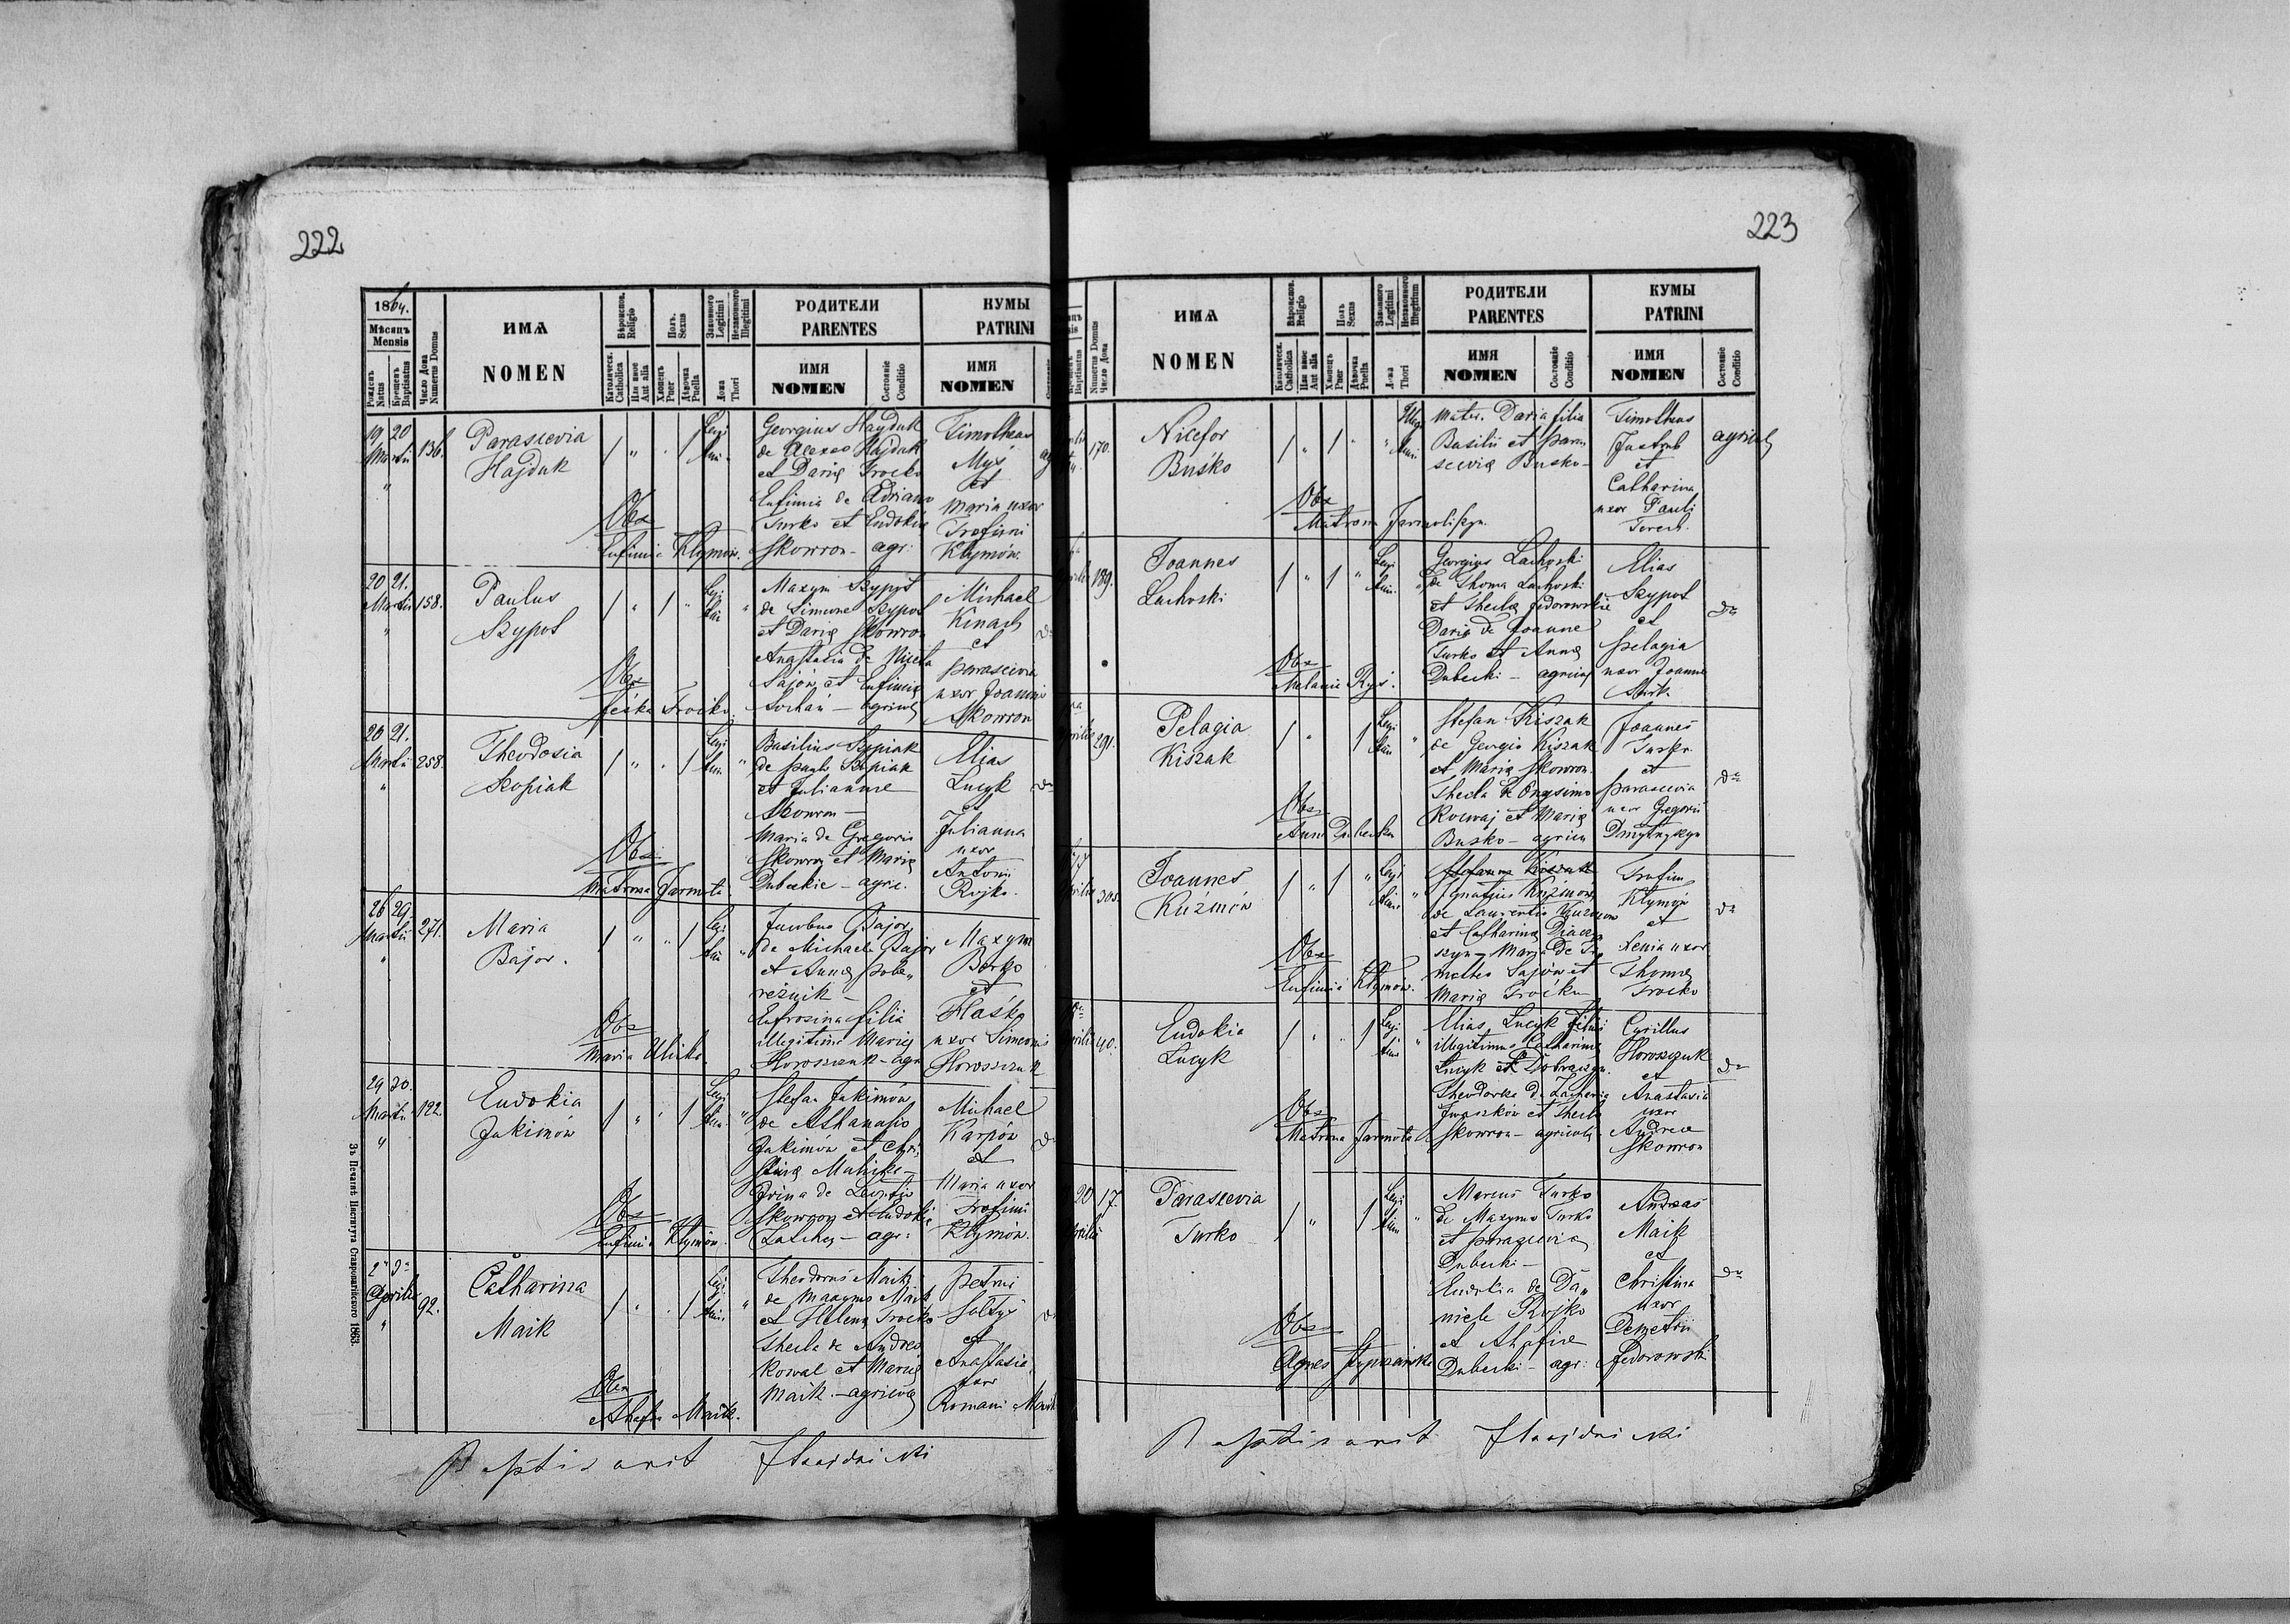 222
1864.
Мѣсяцъ
Mensis
Рожденъ
Natus
Крещенъ
Baptisatus
Число Дома
Numerus Domus
ИМѦ
NOMEN
Вѣроиспов.
Religio
Католическ.
Catholica
Или иное
Aut alia
Полъ.
Sexus
Хлопецъ
Puer
Дѣвочка
Puella
Законного
Legitimi
Незаконного
Illegitimi
Ложа
Thori
РОДИТЕЛИ
PARENTES
ИМЯ
NOMEN
Состояніе
Conditio
КУМЫ
PATRINI
ИМЯ
NOMEN
19 20
Martii
136.
Parascevia
Hajduk
1 " . 1
Legi
timi
Georgius Hajduk
de Alexeo Hajduk
et Daria Trocko
Eufimia de Adriano
Turko et Eudokia
Skowron - agr:
Timotheus
Myś
et
Maria uxor
Trofimi
Klymów.
Obs
Eufimia Klymów.
20 21.
Martii
158.
Paulus
Szypot
1 " 1 "
Legi
timi
Maxym Szypot
de Simeone Szypot
et Daria Skowron
Anastasia de Niceta
Sajów et Eufimia
- agricolae
Michael
Kinach
et
parascevia
uxor Joannis
Skowron
Obs
Feśka Trocko.
20 21.
Martii
258.
Theodosia
Szopiak
1 " . 1
Legi
timi
Basilius Szopiak
de Paulo Szopiak
et Julianna
Skowron -
Maria de Gregorio
Skowron et Maria
Dubeckie - agric.
Elias
Lucyk
et
Julianna
uxor
Antonii
Rojko.
Obs
Matrona Jarmota.
26 29.
Martii
271.
Maria
Bajor.
1 " " 1
Legi
timi
Jacobus Bajor
de Michaele Bajor
et Anna pobe"
reźnik -
Eufrosina filia
illegitima Mariae
Horoszczuk - agr
Maxym
Borko
et
Haśka
uxor Simeonis
Horoszczuk
Obs
Maria
29 30.
Martii
122.
Eudokia
Jakimów
1 " . 1
Legi
timi
Stefan Jakimów
de Athanasio
Jakimów et Chri,
stina -
Irina de Leontio
Skowron et Eudokia
- agr:
Michael
Karpów
et
Maria uxor
Trofimi
Klymów.
Obs
Eufimia Klymów.
2a 3a
Aprilis
92.
Catharina
Maik
1 " . 1
Legi
timi
Theodorus Maik
de Maxymo Maik
et Helena Trocko
Thecla de Andrea
Kowal et Maria
Maik - agricolae
Petrus
Sołtys
et
Anastasia
uxor
Romani Maik
Obs
Ahafia Maik.
Baptisavit Hajdnicki
Зъ Печатнѣ Института Ставропигійского 1863.
223
Крещенъ
Baptisatus
Numerus Domus
Число Дома
ИМѦ
NOMEN
Вѣроиспов.
Religio
Католическ.
Catholica
Или иное
Aut alia
Полъ
Sexus
Хлопецъ
Puer
Дѣвочка
Puella
Законного
Legitimi
Незаконного
Illegitimum
Ложа
Thori
РОДИТЕЛИ
PARENTES
ИМЯ
NOMEN
Состояніе
Conditio
КУМЫ
PATRINI
ИМЯ
NOMEN
Состояніе
Conditio
170.
Nicefor
Buśko
1 " 1 "
Illegi
timi
Mater. Daria filia
Basilii et Para
sceviae Busko -
Timotheus
Jastrub
et
Catharina
uxor Pauli
Terech.
agricolae
Obs
Matrona
189.
Joannes
Lachoski
1 " 1 "
Legi
timi
Georgius Lachoski
de Thoma Lachoski
et Thecla Fedorowskie
Daria de Joanne
Turko et Anna
Dubecki - agricolae
Elias
Szypot
et
pelagia
uxor Joannis
dto
Obs
Melania Ryś.
291.
Pelagia
Kiszak
1 " 1
Legi
timi
Stefan Kiszak
de Georgio Kiszak
et Maria Skowron.
Thecla de Onysimo
Korwaj et Maria
Busko - agricolae
Joannes
Turko
et
parascevia
uxor Gregorii
Dmytryszyn
dto
Obs
Anna Dubecka
17
Aprilis
305.
Joannes
Kuźmów
1 " 1 "
Legi
timi
Ignatius Kuźmów
de Laurentio Kuźmów
et Catharina Diacy
szyn - Maria de Ti,
motheo Sajów et
Maria Trocko -
Trofim
Klymów
et
Xenia uxor
Thomae
Trocko
dto
Obs
Eufimia Klymów.
40.
Eudokia
Lucyk
1 " . 1
Legi
timi
Elias Lucyk filius
illegitimus Catharinae
Lucyk et Dobraszyn.
Theodorka de Zacharia
Iwaszków et Thecla
Skowron - agricolae
Cyrillus
Horoszczuk
et
Anastasia
uxor
Andreae
Skowron
dto
Obs
Matrona Jarmota
20
Aprilis
17.
Parascevia
Turko
1 " 1
Legi
timi
Marcus Turko
de Maxymo Turko
et parascevia
Dubecki -
Eudokia de Da"
niele Rojko
et Ahafia
Dubecki - agr:
Andreas
Maik
et
Christina
uxor
Demetrii
Fedorowski
dto
Obs
Agnes
Baptisavit Hajdnicki